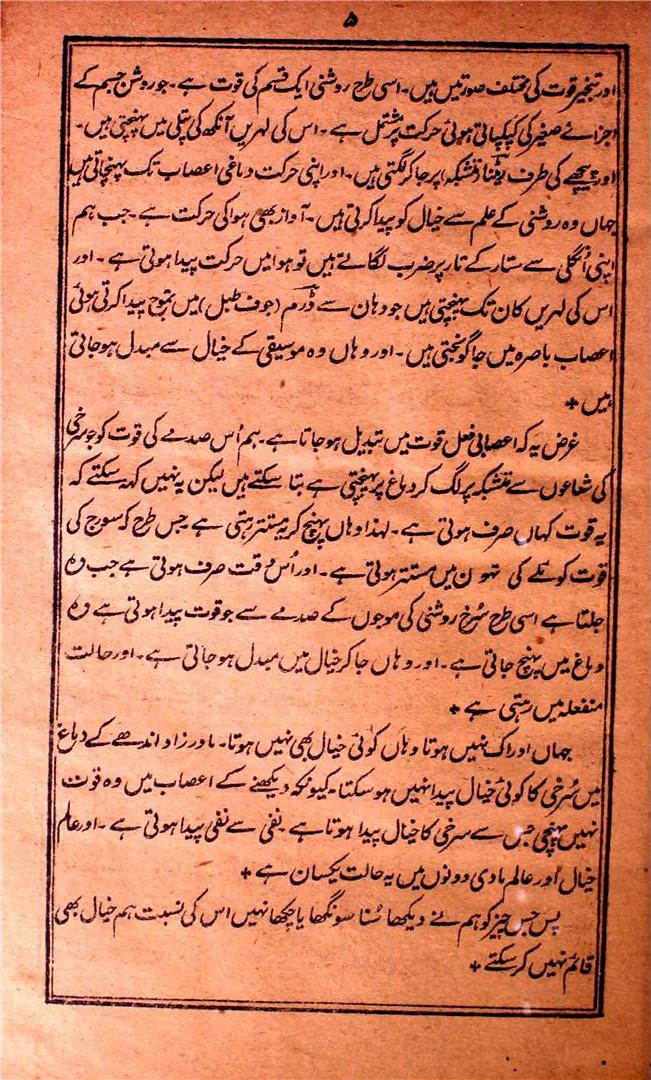 ۵
اور تبخیر قوت کی مختلف صورتیں ہیں۔ اسی طرح روشنی ایک قسم کی قوت ہے۔ جو روشن جسم کے
اجزائے صغیر کی کپکپاتی ہوئی حرکت پر مشتمل ہے۔ اس کی لہریں آنکھ کی پتلی میں پہنچتی ہیں۔
اور پیچھے کی طرف ریٹنا (متشبکہ) پر جا کر لگتی ہیں۔ اور اپنی حرکت دماغی اعصاب تک پہنچاتی ہیں
جہاں وہ روشنی کے علم سے خیال کو پیدا کرتی ہیں۔ آواز بھی ہوا کی حرکت ہے۔ جب ہم
اپنی اُنگلی سے ستار کے تار پر ضرب لگاتے ہیں تو ہوا میں حرکت پیدا ہوتی ہے۔ اور
اس کی لہریں کان تک پہنچتی ہیں جو وہاں سے ڈرم (جوف طبل) میں تموج پیدا کرتی ہوئی
اعصاب باصرہ میں جا گونجتی ہیں۔ اور وہاں وہ موسیقی کے خیال سے مبدل ہو جاتی
ہیں +
غرض یہ کہ اعصابی فعل قوت میں تبدیل ہو جاتا ہے۔ ہم اُس صدمے کی قوت کو جو سرخی
کی شعاعوں سے متشبکہ پر لگ کر دماغ پر پہنچتی ہے بتا سکتے ہیں لیکن یہ نہیں کہہ سکتے کہ
یہ قوت کہاں صرف ہوتی ہے۔ لہذا وہاں پہنچ کر یہ مستتر رہتی ہے جس طرح کہ سورج کی
قوت کوئلے کی تہون میں مستتر ہوتی ہے۔ اور اُس وقت صرف ہوتی ہے جب وہ
جلتا ہے اسی طرح سُرخ روشنی کی موجوں کے صدمے سے جو قوت پیدا ہوتی ہے وہ
دماغ میں پہنچ جاتی ہے۔ اور وہاں جا کر خیال میں مبدل ہو جاتی ہے۔ اور حالت
منفعلہ میں رہتی ہے +
جہاں ادراک نہیں ہوتا وہاں کوئی خیال بھی نہیں ہوتا۔ مادر زاد اندھے کے دماغ
میں سُرخی کا کوئی خیال پیدا نہیں ہو سکتا۔ کیونکہ دیکھنے کے اعصاب میں وہ قوت
نہیں پہنچی جس سے سرخی کا خیال پیدا ہوتا ہے۔ نفی سے نفی پیدا ہوتی ہے۔ اور عالم
خیال اور عالم مادی دونوں میں یہ حالت یکسان ہے +
پس جس چیز کو ہم نے دیکھا سُنا سونگھا یا چکھا نہیں اس کی نسبت ہم خیال بھی
قائم نہیں کر سکتے +